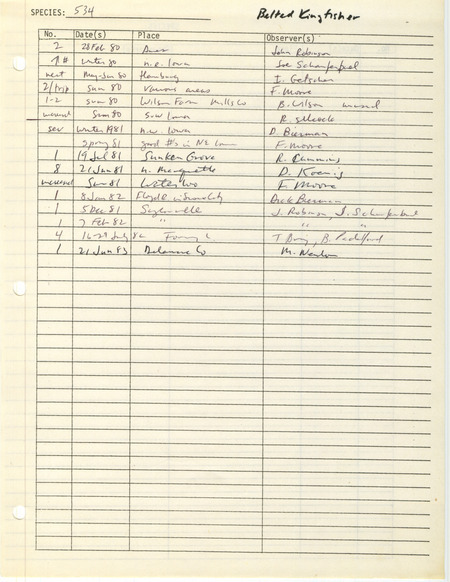 SPECIES: 534 Belted Kingfisher
No. Date(s) Place Observer(s)
2 28 Feb 80 John Robinson
1# winter 80 n.e. Iowa Joe Schaufenbuel
nest May-Jun 80 Hamburg I. Getscher
sum 80 various areas F. Moore
1-2 sum 80 Wilson Farm Mills Co B. Wilson unusual
unusual Sum 80 R. Silcock
sev winter 1981 n.w. Iowa D. Bierman
Spring 81 good #s in NE Iowa F. Moore
1 19 Jul 81 Sunken Grove R. Cummins
8 21 Jun 81 n. Marquette D. Koenig
unusual Sum 81 Waterloo F. Moore
1 8 Jan 82 Floyd R Dick Bierman
1 5 Dec 81 Saylorville J. Robinson, J. Schaufenbuel
1 7 Feb 82 " " "
4 16-29 July 82 B. Padelford
1 21 Jun 83 Delaware Co M. Newlon